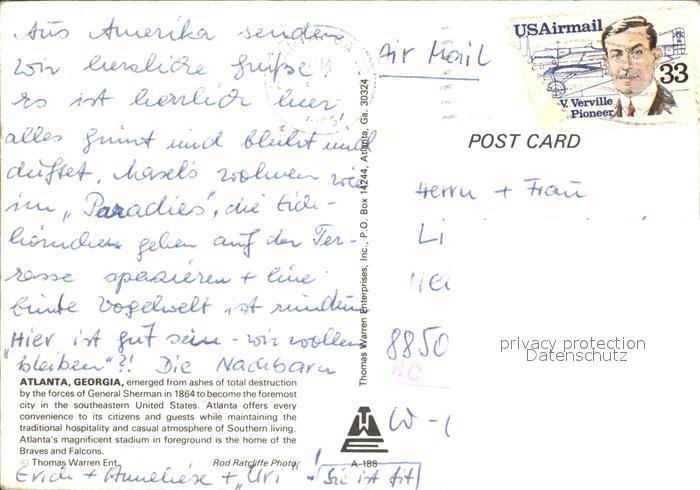 Aus Amerika senden
wir herzliche Grüße!
es ist herrlich hier
alles grünt und blüht und
duftet. wohnen wie
im „Paradies", die Eich-
hörnchen gehen auf der Ter-
rasse spazieren + eine
bunte Vogelwelt ist rundum
Hier ist gut sein - wir wollen
„bleiben"?! Die Nachbarn
ATLANTA, GEORGIA, emerged from ashes of total destruction
by the forces of General Sherman in 1864 to become the foremost
city in the southeastern United States. Atlanta offers every
convenience to its citizens and guests while maintaining the
traditional hospitality and casual atmosphere of Southern living.
Atlanta's magnificent stadium in foreground is the home of the
Braves and Falcons.
© Thomas Warren Ent. Rod Ratcliffe Photo
Erich + Anneliese + „Uri" - Sie ist fit!
Thomas Warren Enterprises, Inc., P.O. Box 14244, Atlanta, Ga. 30324
A-188
Air Mail
USAirmail
33
V. Verville
Pioneer
POST CARD
Herrn + Frau
Li
8850
W-
privacy protection
Datenschutz